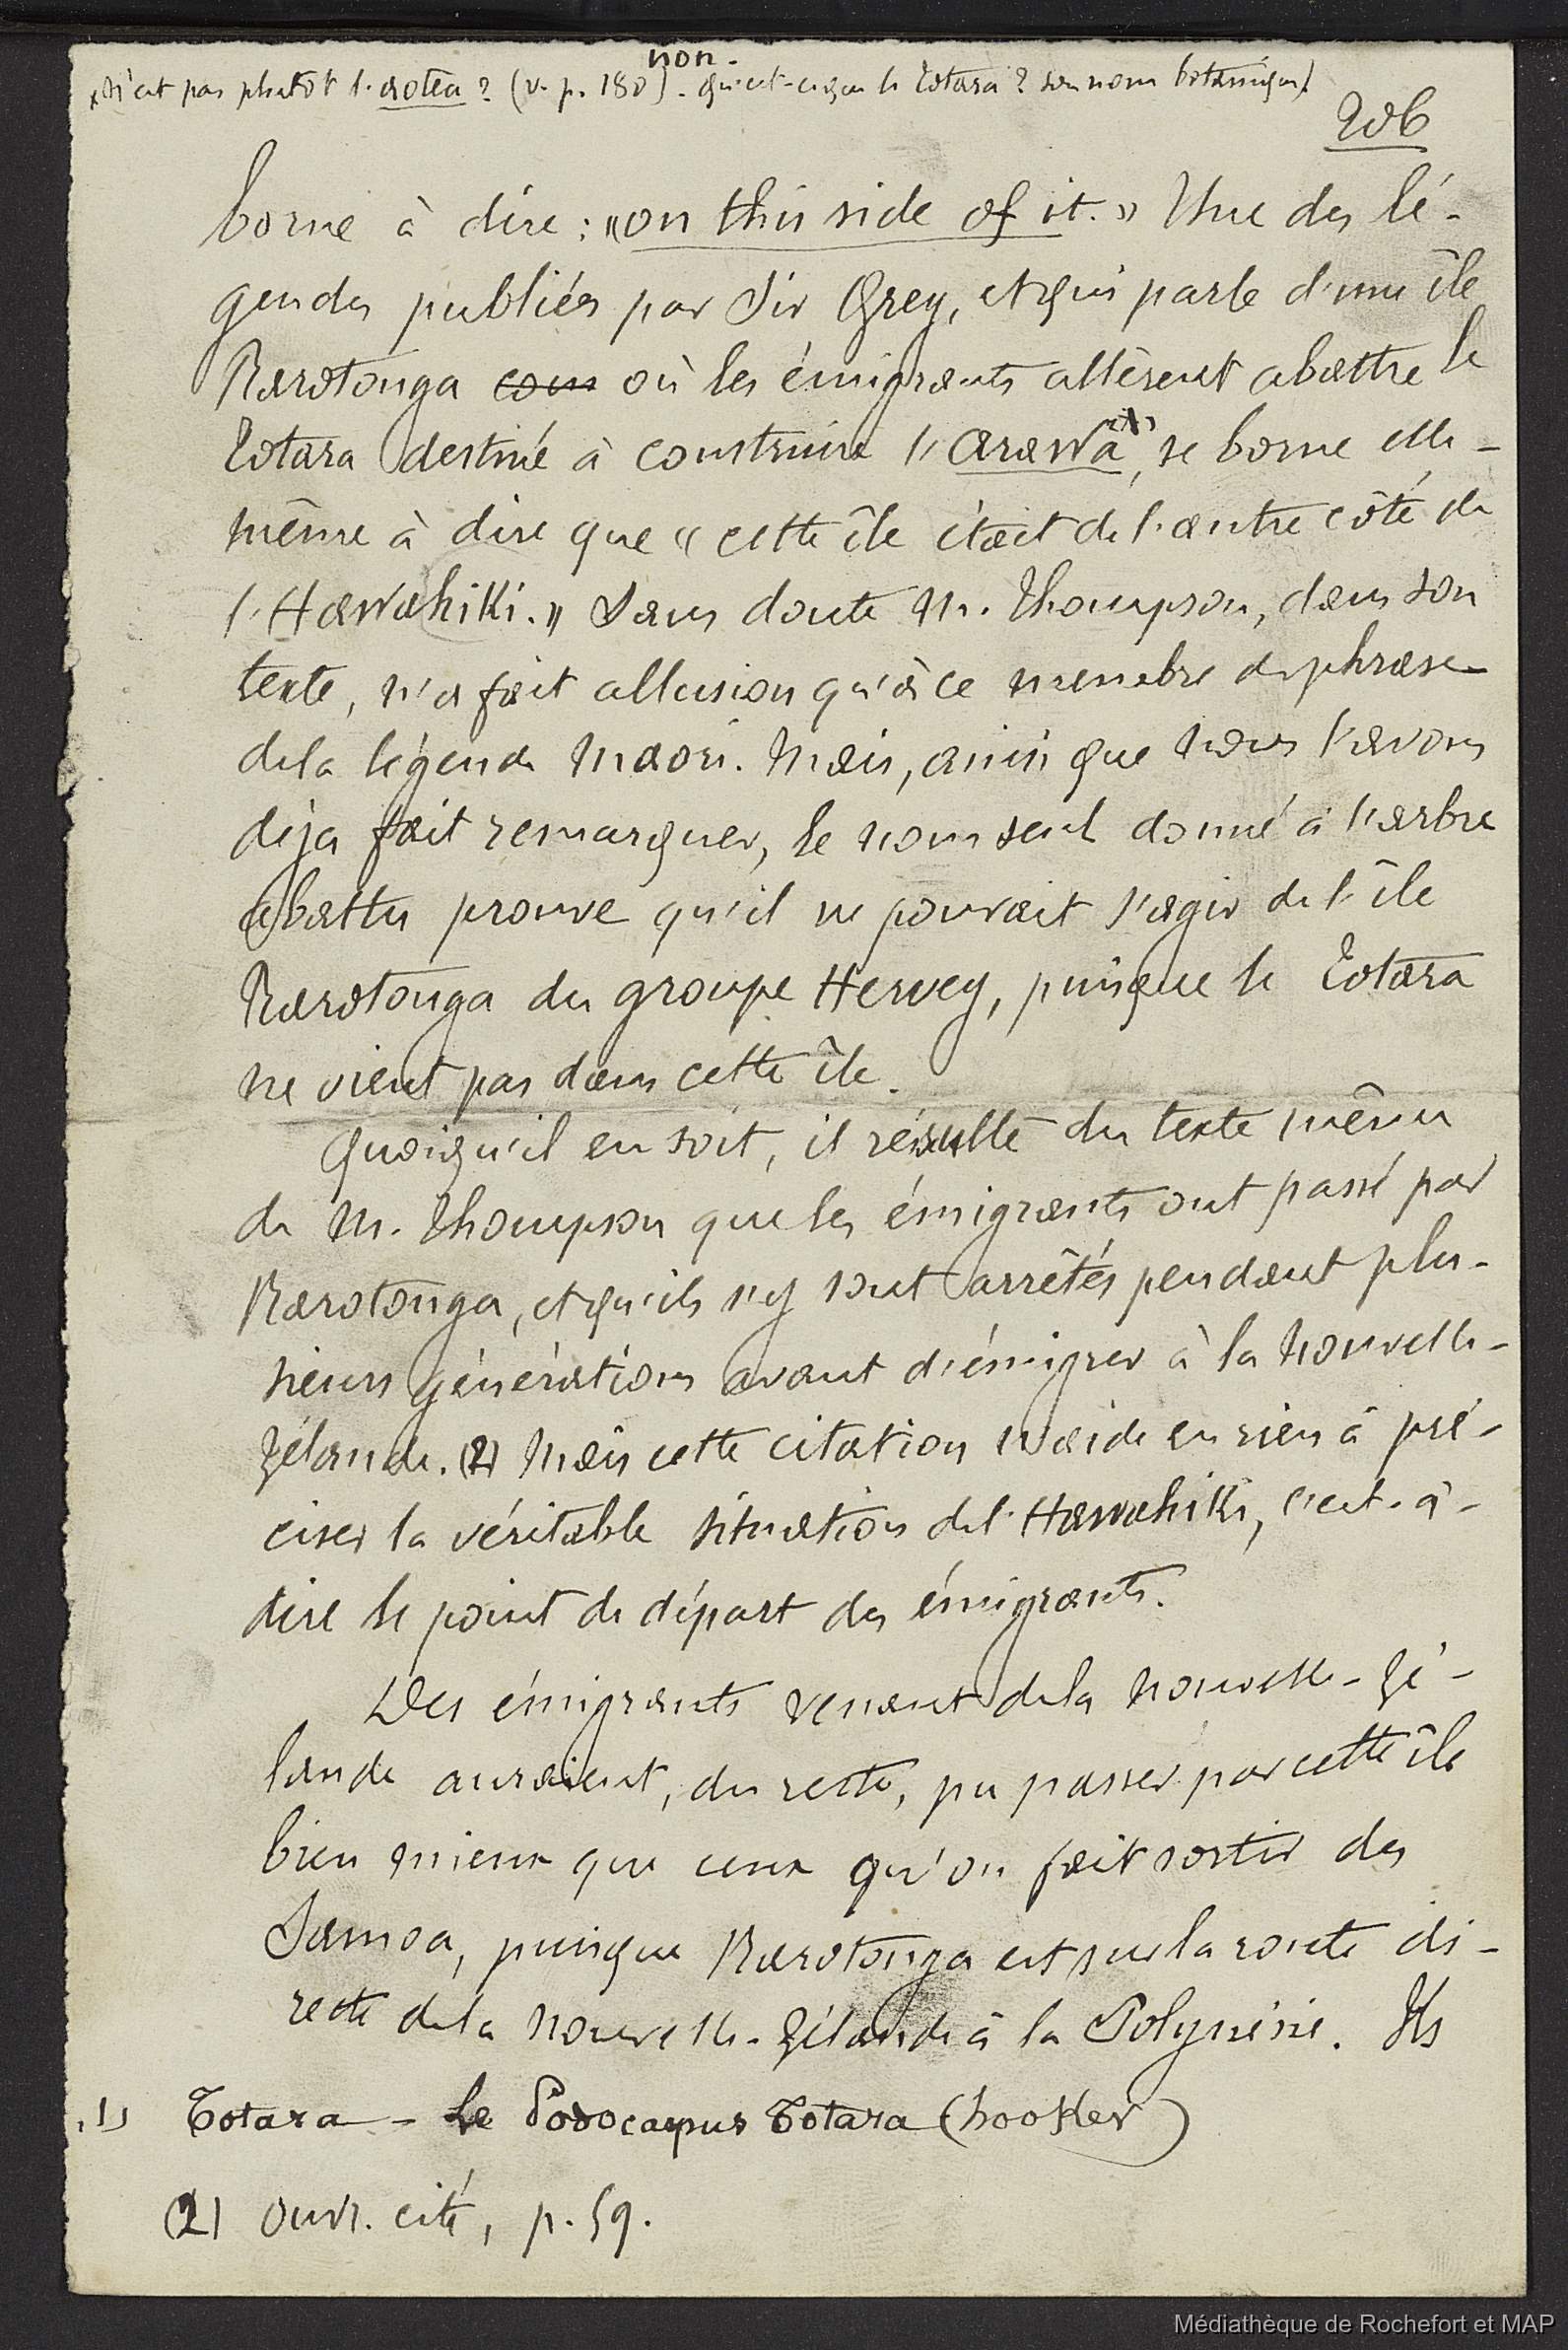 non.
x N'est pas plutôt l'aotea ? (v. p. 180). qu'est-ce que le Totara ? son nom botanique).
206
borne à dire : « on this side of it. » Une des lé-
gendes publiées par Sir Grey, et qui parle d'une île
Rarotonga com où les émigrants allèrent abattre le
Totara destiné à construire l'arawa (x), se borne elle-
même à dire que « cette île était de l'autre côté de
l'Hawahiki. » Sans doute M. Thompson, dans son
texte, n'a fait allusion qu'à ce membre de phrase
de la légende maori. Mais, ainsi que nous l'avons
déja fait remarquer, le nom seul donné à l'arbre
abattu prouve qu'il ne pouvait s'agir de l'île
Rarotonga du groupe Hervey, puisque le Totara
ne vient pas dans cette île.
Quoiqu'il en soit, il résulte du texte même
de M. Thompson que les émigrants ont passé par
Rarotonga, et qu'ils s'y sont arrêtés pendant plu-
sieurs générations avant d'émigrer à la Nouvelle-
Zélande. (2) Mais cette citation n'aide en rien à pré-
ciser la véritable situation de l'Hawahiki, c'est-à-
dire le point de départ des émigrants.
Des émigrants venant de la Nouvelle-Zé-
lande auraient, du reste, pu passer par cette île
bien mieux que ceux qu'on fait sortir des
Samoa, puisque Rarotonga est sur la route di-
recte de la Nouvelle-Zélande à la Polynésie. Ils
(1) Totara - Le Podocarpus Totara (hooker)
(2) Ouvr. cité, p. 59.
Médiathèque de Rochefort et MAP